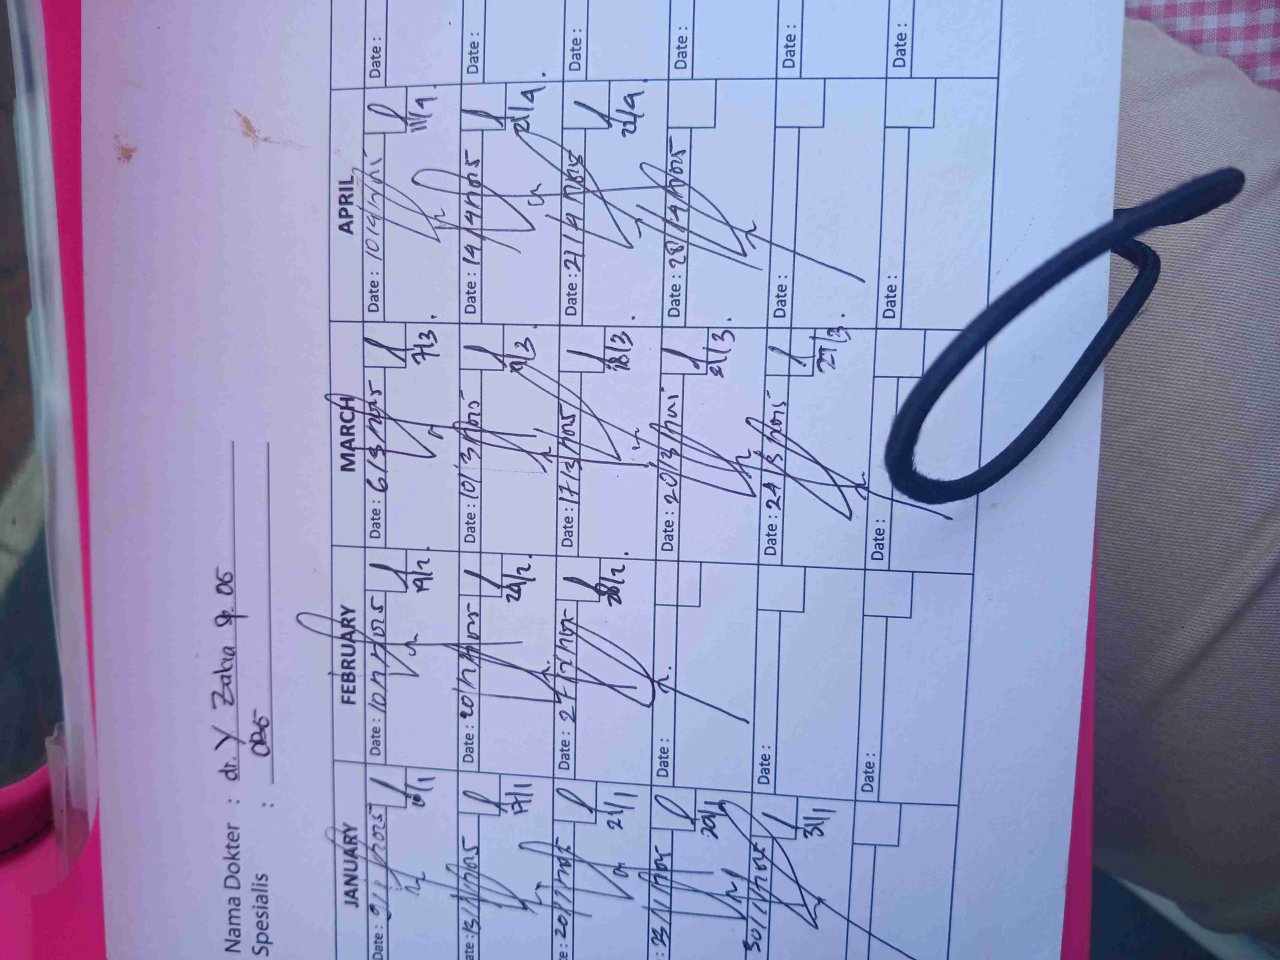 Nama Dokter : dr. Y Zaka
Spesialis :
JANUARY FEBRUARY MARCH APRIL
Date: 9/1/2025 Date: 10/2/2025 Date: 6/3/2025 Date: 10/4/2025 Date:
10/1 19/2. 7/3. 11/4.
ate: 13/1/2025 Date: 20/2/2025 Date: 10/3/2025 Date: 14/4/2025 Date:
17/1 24/2. 21/4.
e: 20/1/2025 Date: 27/2/2025 Date: 17/3/2025 Date: 21/4/2025 Date:
21/1 28/2. 18/3. 22/4.
: 23/1/2025 Date: Date: 20/3/2025 Date: 28/4/2025 Date:
21/3.
30/1/2025 Date: Date: 24/3/2025 Date: Date:
31/1 27/3.
Date: Date: Date: Date: